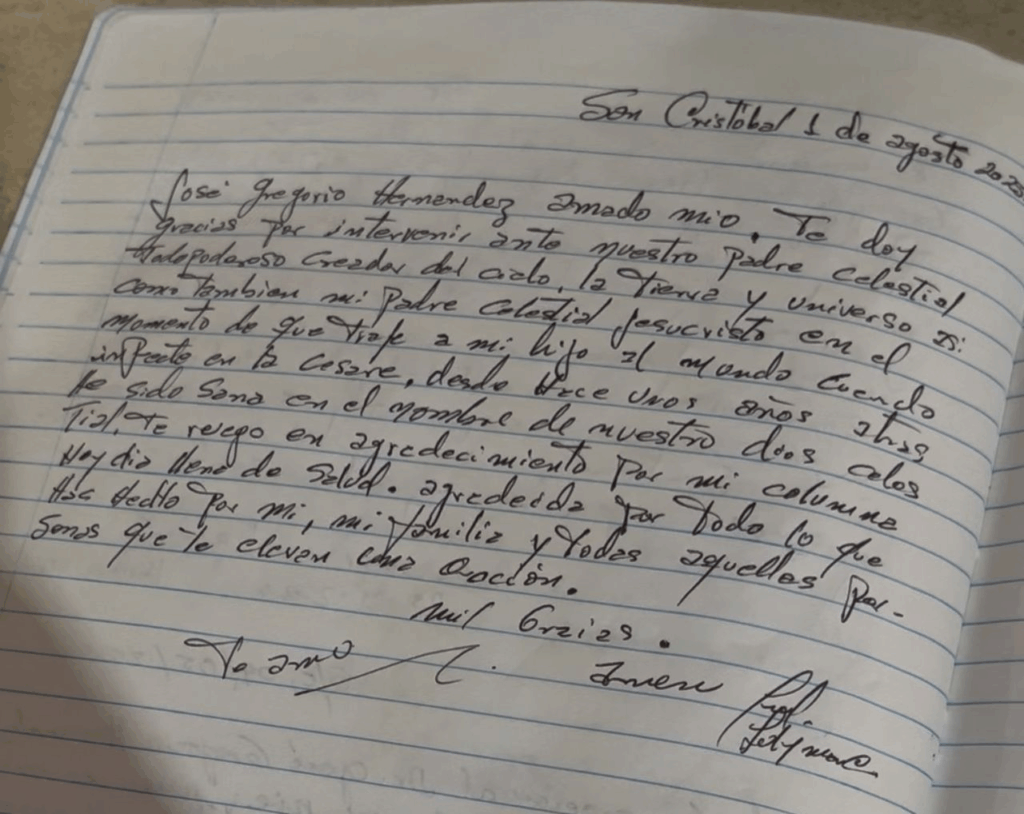 San Cristóbal 1 de agosto 2025
José Gregorio Hernandez amado mio. Te doy
gracias por intervenir ante nuestro padre celestial
todopoderoso creador del cielo, la tierra y universo
como tambien mi padre celestial Jesucristo en el
momento de que traje a mi hijo al mundo cuando
en la cesare, desde hace unos años atras
he sido sana en el nombre de nuestro dios celes
Tial. Te ruego en agredecimiento por mi columna
Hoy dia llena de salud. agredecida por todo lo que
Has Hecho por mi, mi familia y todas aquellas per-
sonas que te eleven una oración.
mil Grazias.
Te amo
Amen